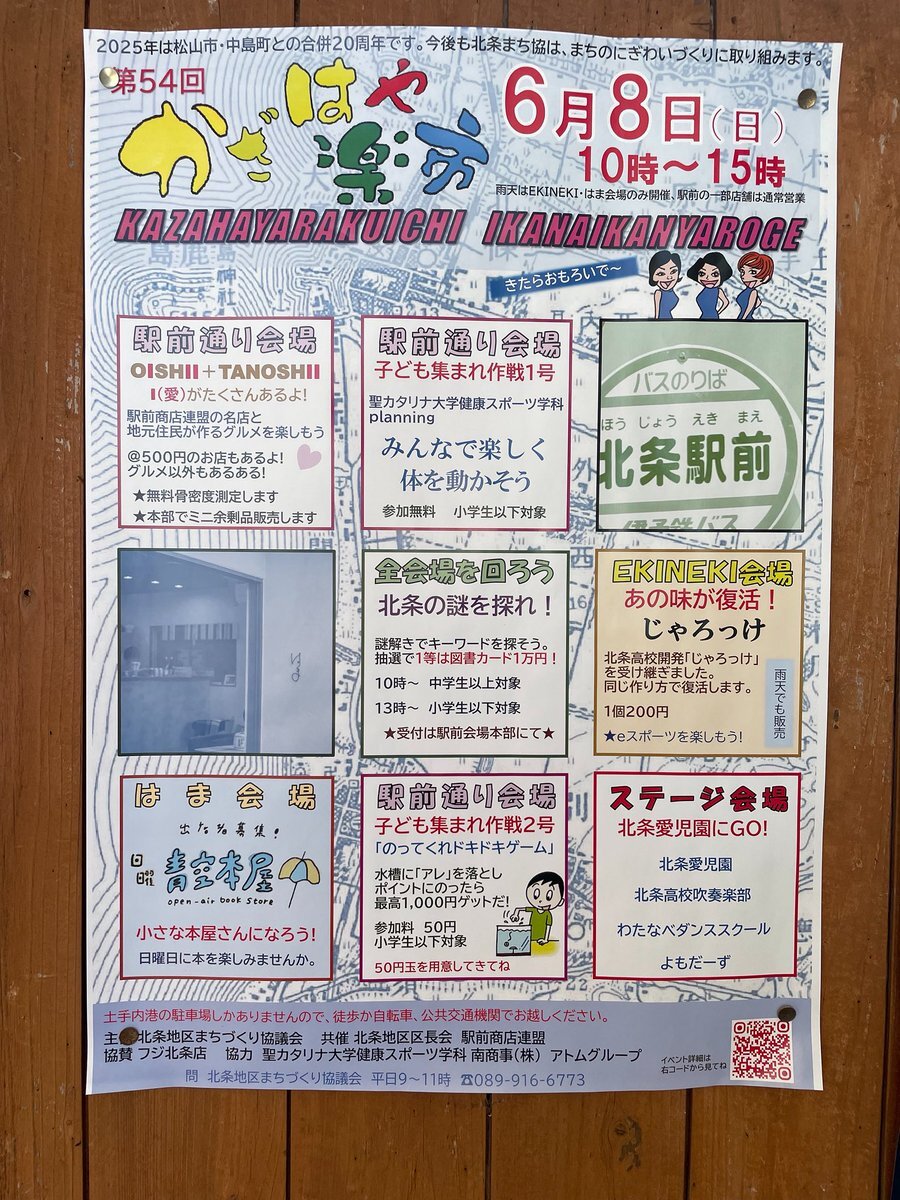 2025年は松山市・中島町との合併20周年です。今後も北条まち協は、まちのにぎわいづくりに取り組みます。
第54回
かざはや
楽市
6月8日(日)
10時～15時
雨天はEKINEKI・はま会場のみ開催、駅前の一部店舗は通常営業
KAZAHAYARAKUICHI IKANAIKANYAROGE
きたらおもろいで～
駅前通り会場
OISHII+TANOSHII
I(愛)がたくさんあるよ!
駅前商店連盟の名店と
地元住民が作るグルメを楽しもう
@500円のお店もあるよ!
グルメ以外もあるある!
★無料骨密度測定します
★本部でミニ余剰品販売します
駅前通り会場
子ども集まれ作戦1号
聖カタリナ大学健康スポーツ学科
planning
みんなで楽しく
体を動かそう
参加無料 小学生以下対象
バスのりば
ほうじょうえきまえ
北条駅前
伊予鉄バス
全会場を回ろう
北条の謎を探れ!
謎解きでキーワードを探そう。
抽選で1等は図書カード1万円!
10時～ 中学生以上対象
13時～ 小学生以下対象
★受付は駅前会場本部にて★
EKINEKI会場
あの味が復活!
じゃろっけ
北条高校開発「じゃろっけ」
を受け継ぎました。
同じ作り方で復活します。
1個200円
★eスポーツを楽しもう!
雨天でも販売
はま会場
出店者募集!
日曜
青空本屋
open-air book store
小さな本屋さんになろう!
日曜日に本を楽しみませんか。
駅前通り会場
子ども集まれ作戦2号
「のってくれドキドキゲーム」
水槽に「アレ」を落とし
ポイントにのったら
最高1,000円ゲットだ!
参加料 50円
小学生以下対象
50円玉を用意してきてね
ステージ会場
北条愛児園にGO!
北条愛児園
北条高校吹奏楽部
わたなべダンススクール
よもだーず
土手内港の駐車場しかありませんので、徒歩か自転車、公共交通機関でお越しください。
主 北条地区まちづくり協議会 共催 北条地区区長会 駅前商店連盟
協賛 フジ北条店 協力 聖カタリナ大学健康スポーツ学科 南商事(株) アトムグループ
問 北条地区まちづくり協議会 平日9～11時 ☎089-916-6773
イベント詳細は
右コードから見てね